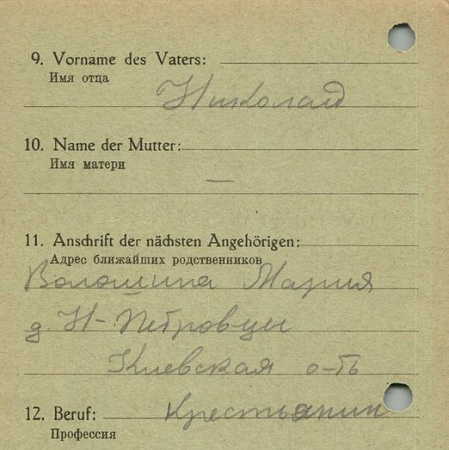 9. Vorname des Vaters:
Имя отца
Николай
10. Name der Mutter:
Имя матери
—
11. Anschrift der nächsten Angehörigen:
Адрес ближайших родственников
Волошина Мария
д. Н-Петровцы
Киевская о-ть
12. Beruf: Крестьянин
Профессия